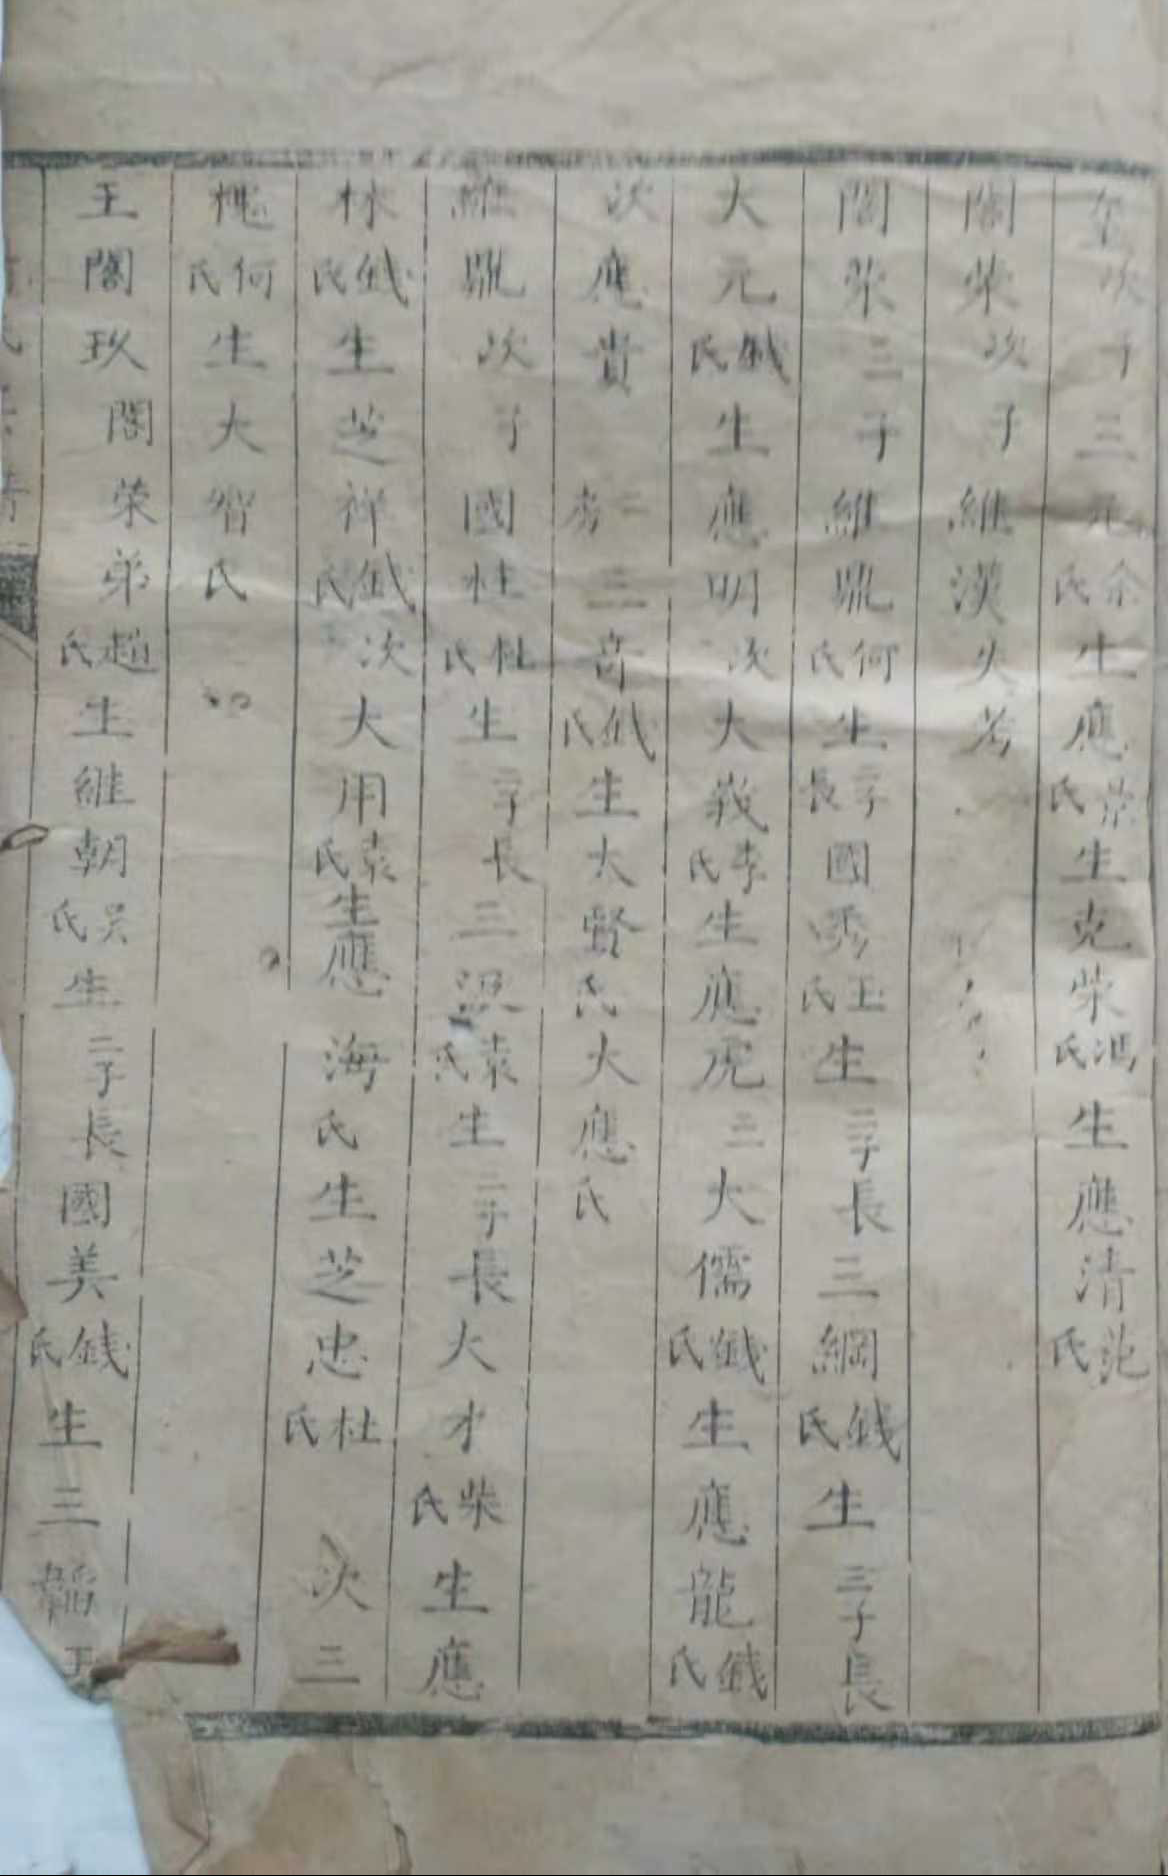 次子三元余氏生應氏生克柴馮氏生應清范氏
閣荣次子維漢失考
閣荣三子維鼎何氏生二子長國秀王氏生三子長三綱錢氏生三子長
大元錢氏生應明次大義李氏生應虎三大儒錢氏生應龍錢氏
次應貴二考三音錢氏生大賢氏大應氏
維鼎次子國柱杜氏生二子長三袁氏生二子長大才柴氏生應
林錢氏生芝祥錢氏次大用袁氏生應海氏生芝忠杜氏次三
槐何氏生大智氏
王閣玖閣荣弟趙氏生維朝吴氏生二子長國美錢氏生三韜